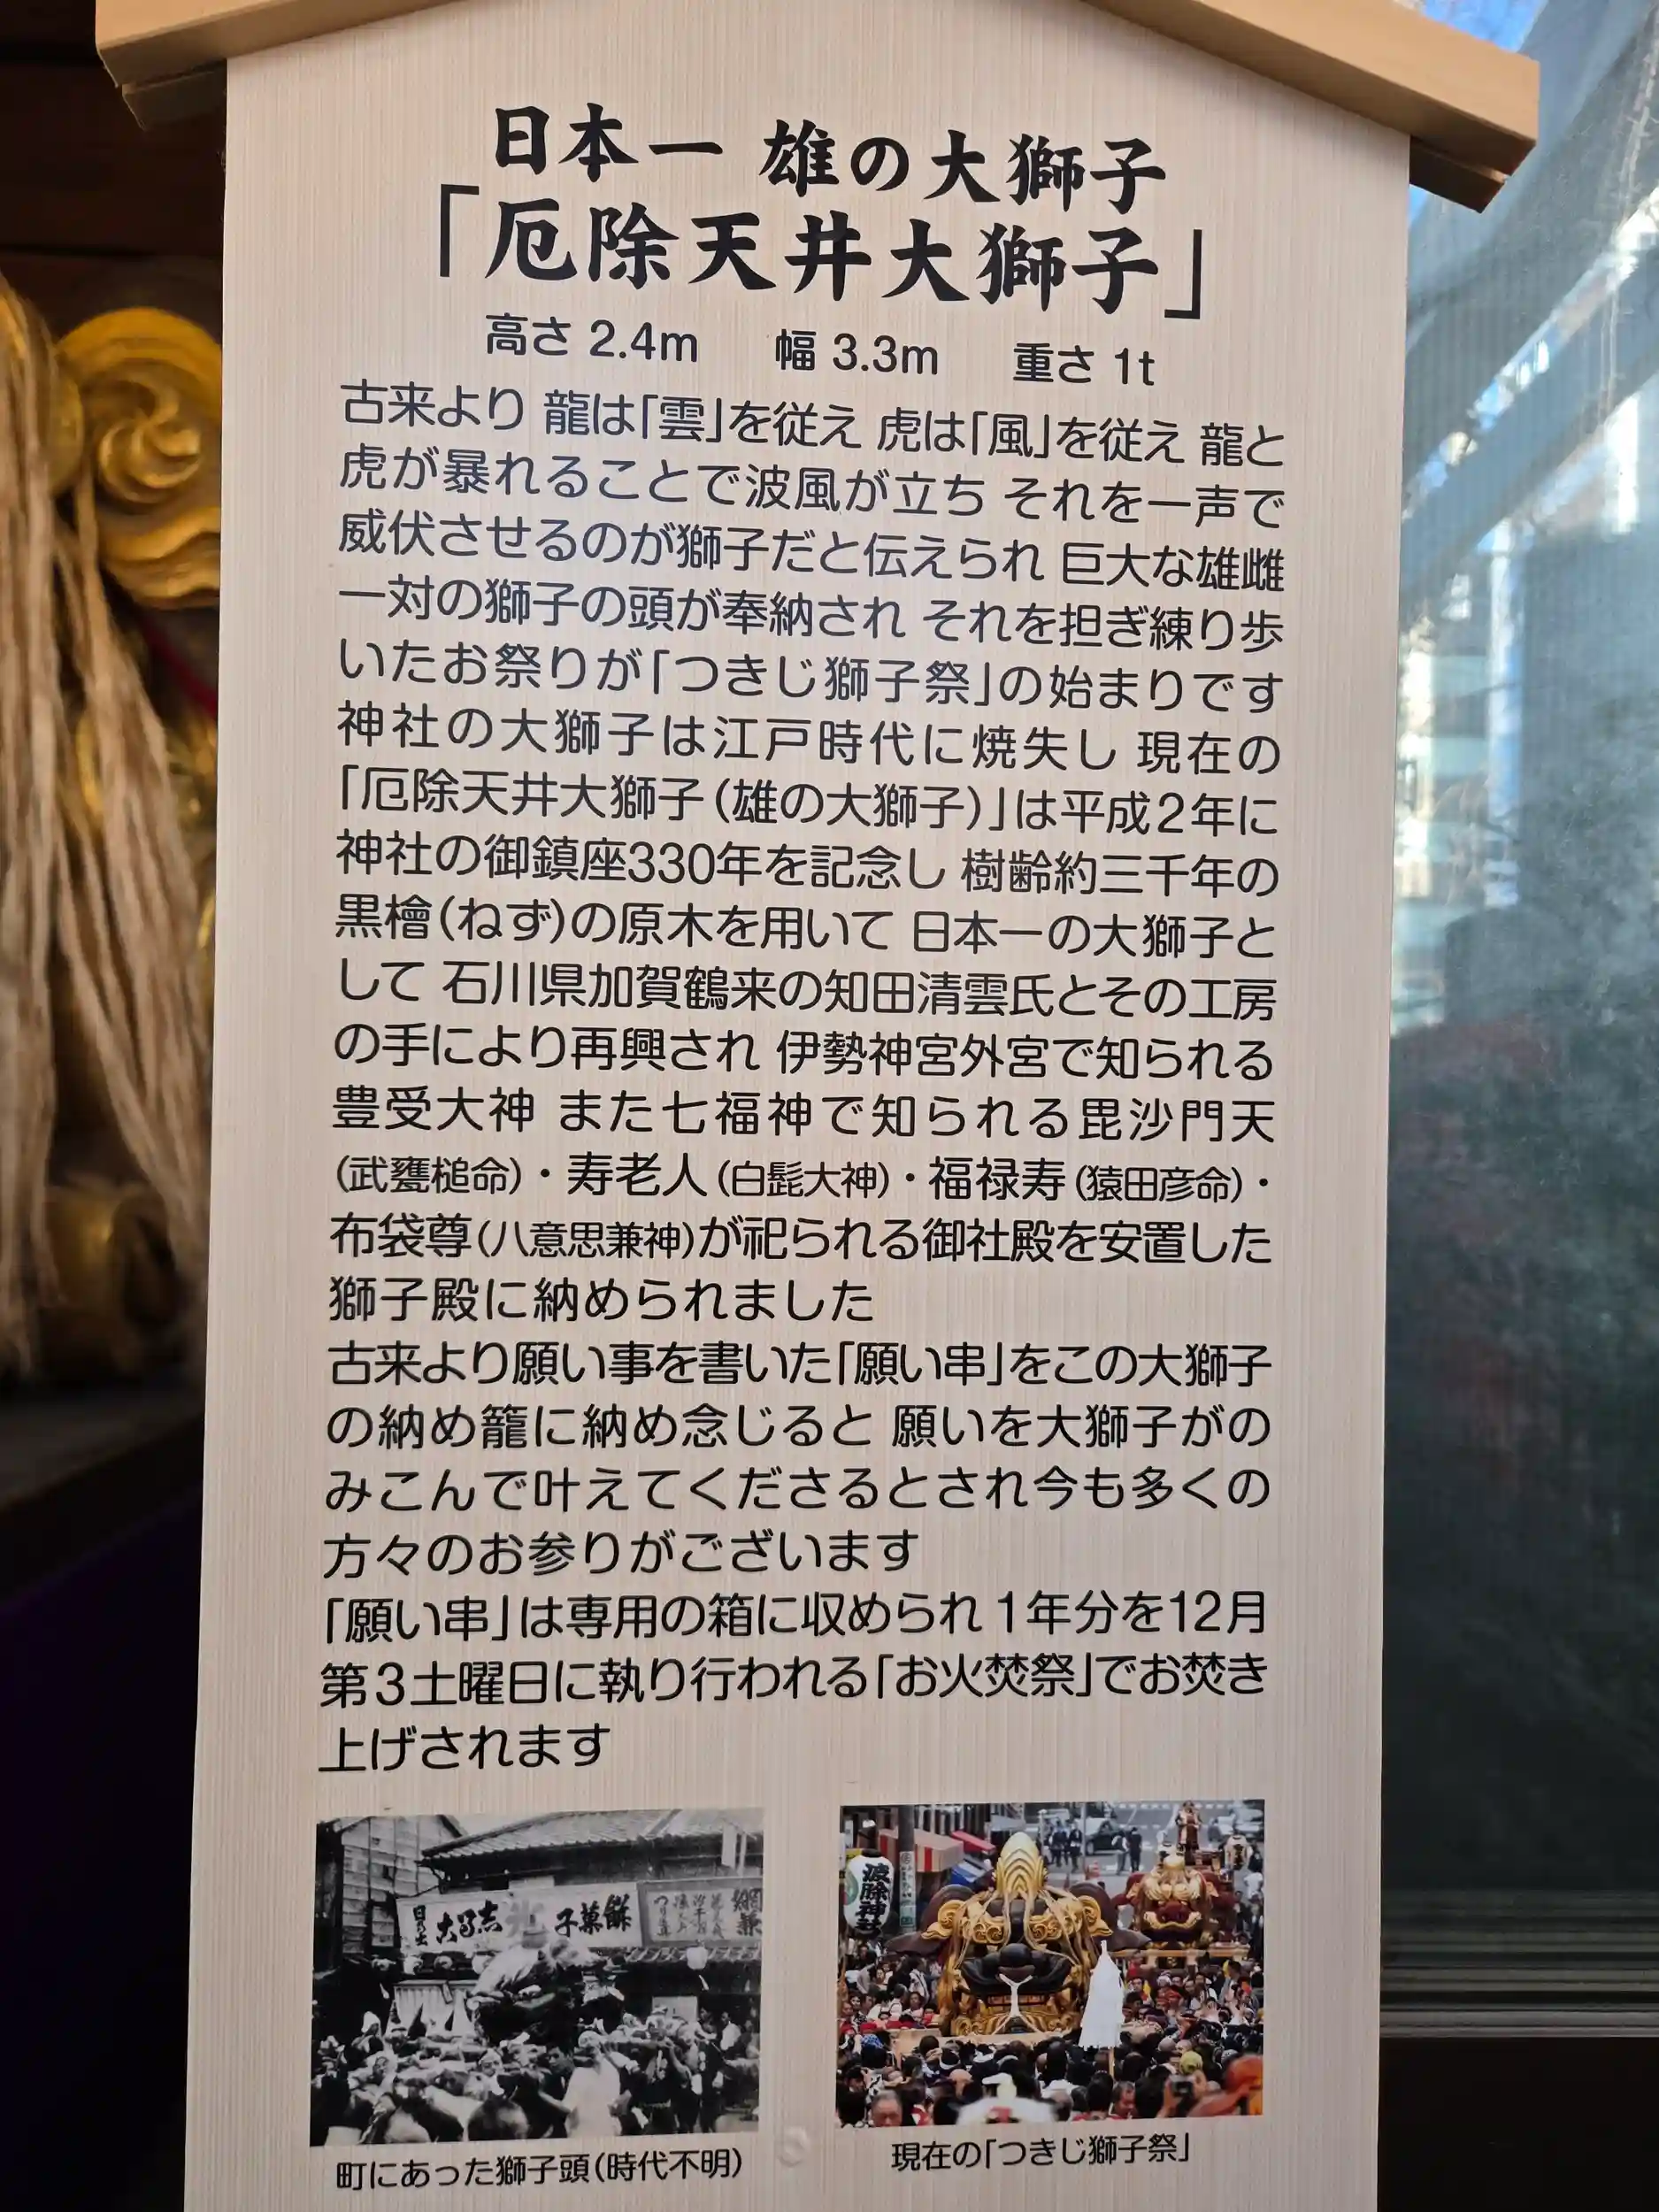 日本一 雄の大獅子
「厄除天井大獅子」
高さ 2.4m 幅 3.3m 重さ 1t
古来より 龍は「雲」を従え 虎は「風」を従え 龍と
虎が暴れることで波風が立ち それを一声で
威伏させるのが獅子だと伝えられ 巨大な雄雌
一対の獅子の頭が奉納され それを担ぎ練り歩
いたお祭りが「つきじ獅子祭」の始まりです
神社の大獅子は江戸時代に焼失し 現在の
「厄除天井大獅子(雄の大獅子)」は平成2年に
神社の御鎮座330年を記念し 樹齢約三千年の
黒檜(ねず)の原木を用いて 日本一の大獅子と
して 石川県加賀鶴来の知田清雲氏とその工房
の手により再興され 伊勢神宮外宮で知られる
豊受大神 また七福神で知られる毘沙門天
(武甕槌命)・寿老人(白髭大神)・福禄寿(猿田彦命)・
布袋尊(八意思兼神)が祀られる御社殿を安置した
獅子殿に納められました
古来より願い事を書いた「願い串」をこの大獅子
の納め籠に納め念じると 願いを大獅子がの
みこんで叶えてくださるとされ今も多くの
方々のお参りがございます
「願い串」は専用の箱に収められ 1年分を12月
第3土曜日に執り行われる「お火焚祭」でお焚き
上げされます
子菓餅
波除神社
町にあった獅子頭(時代不明)
現在の「つきじ獅子祭」